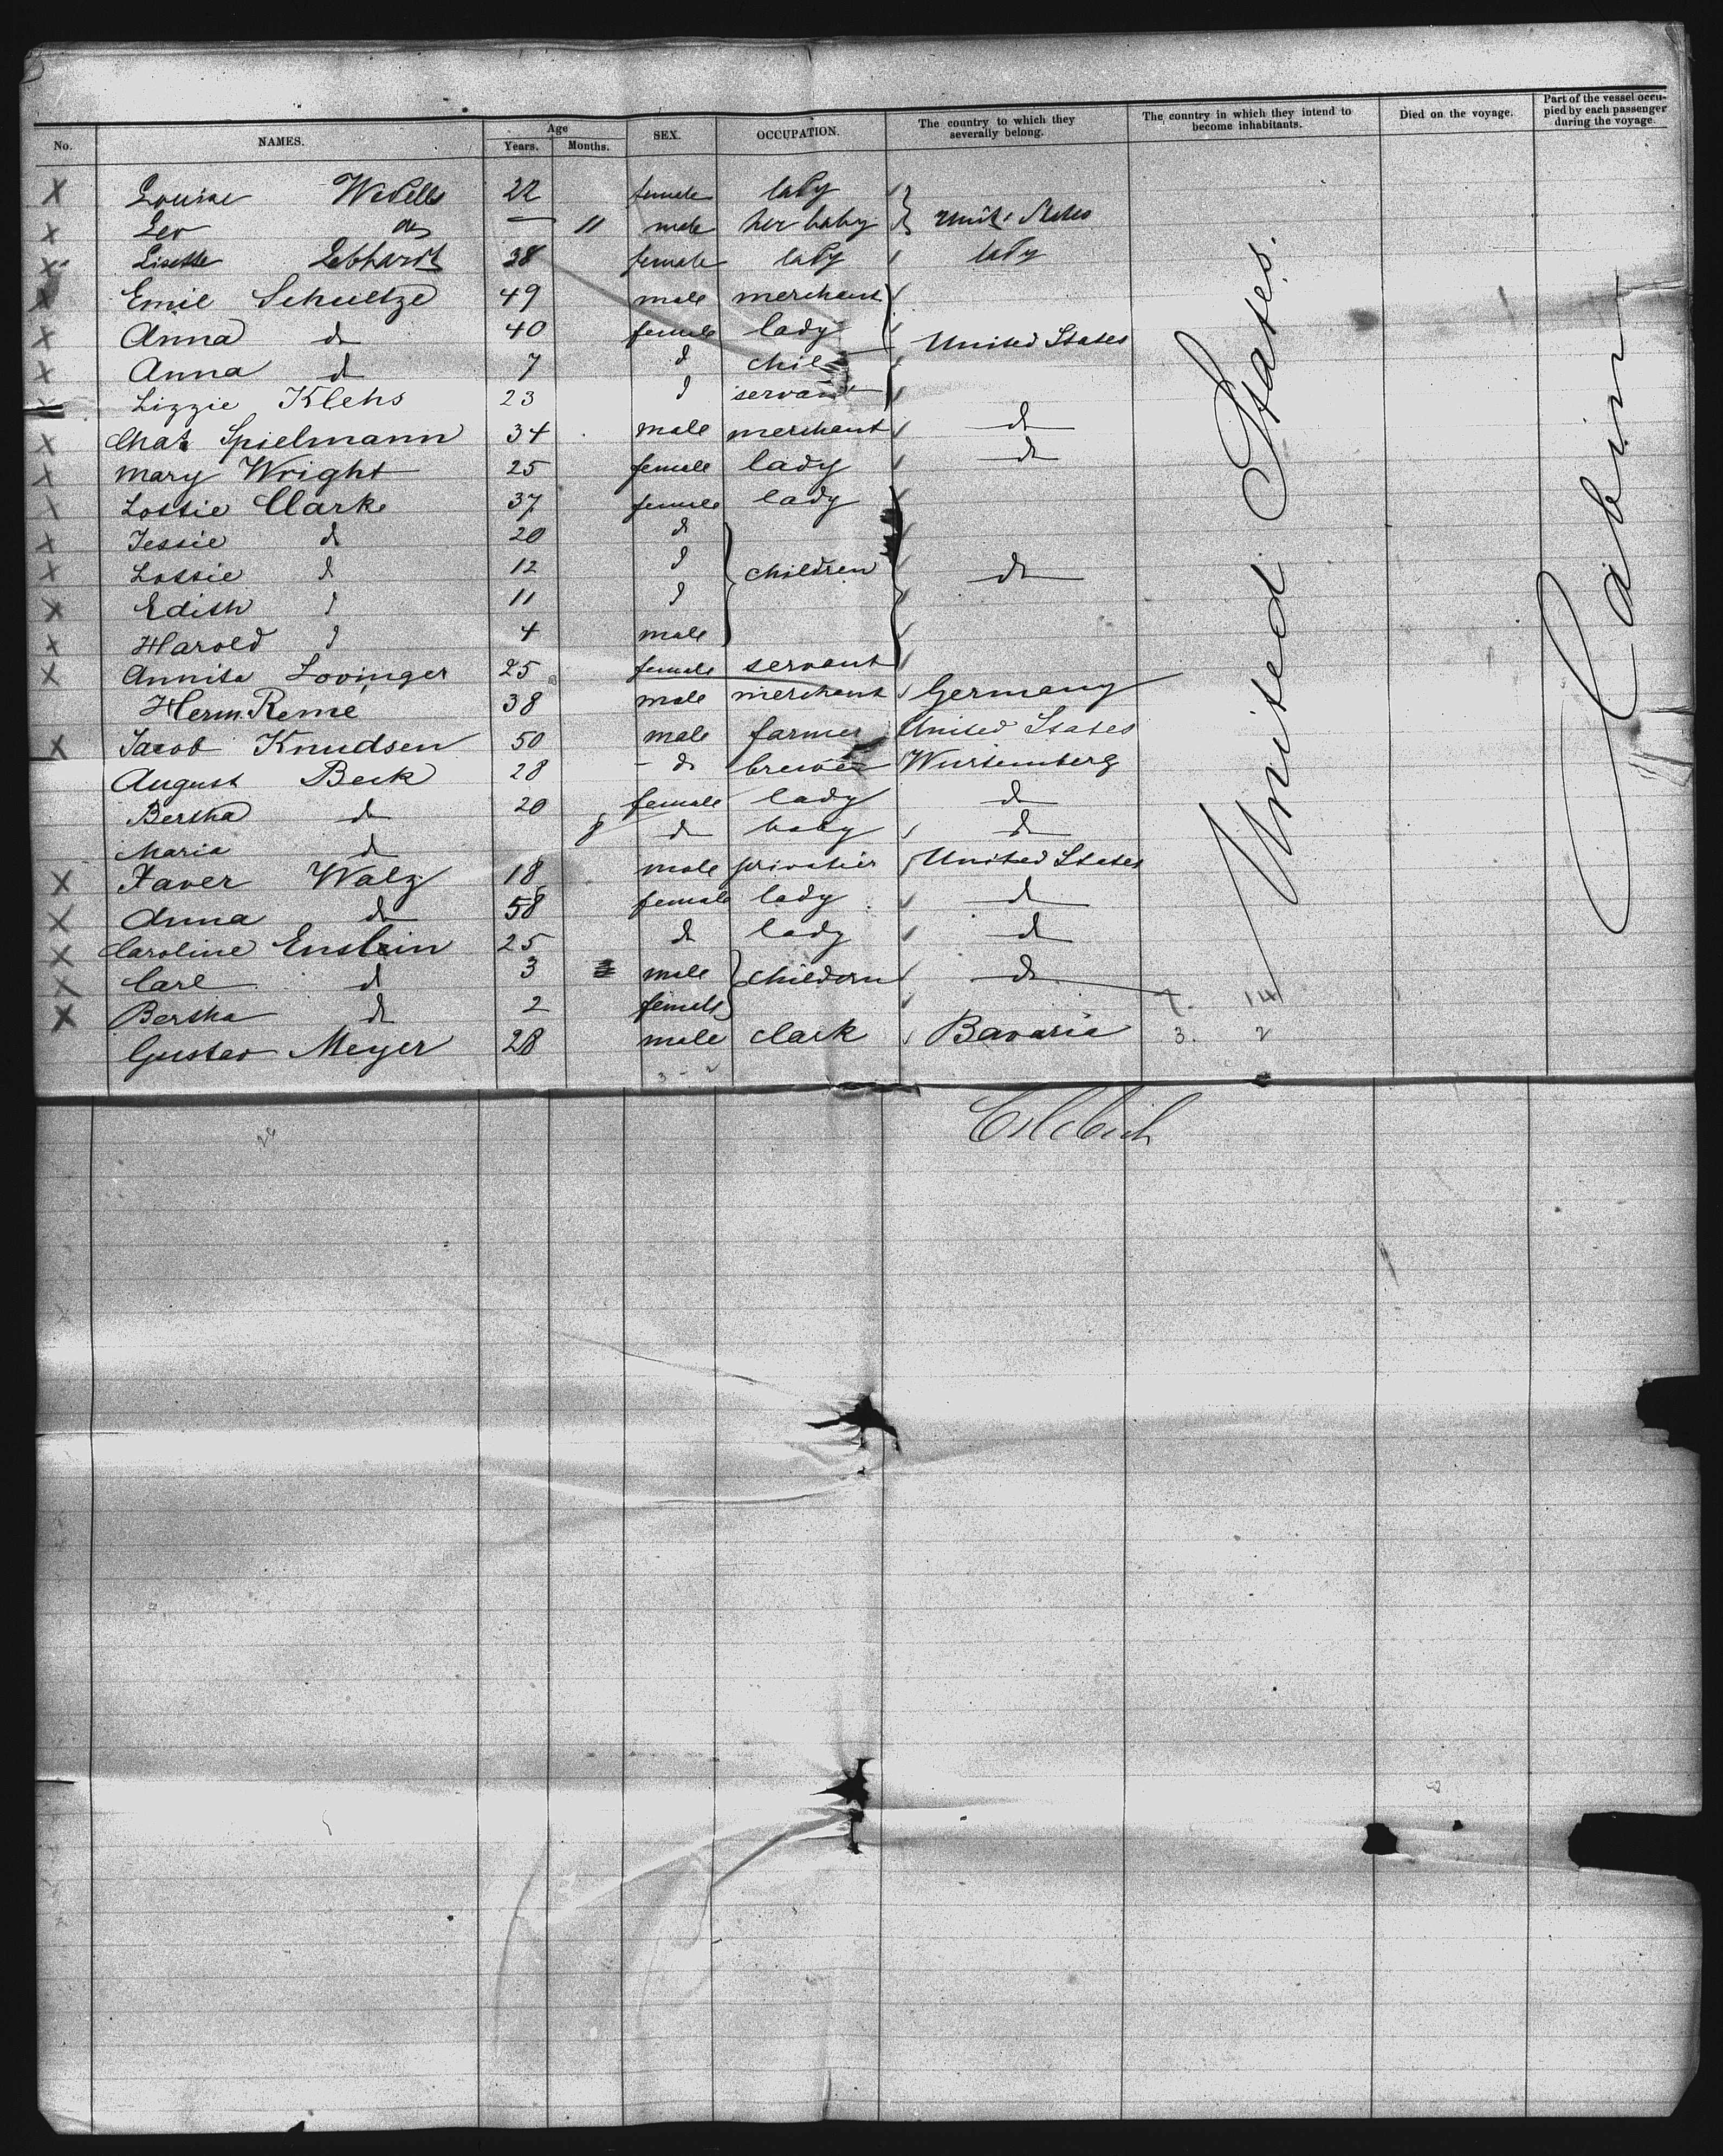 No. NAMES. Age Years. Months. SEX. OCCUPATION. The country to which they severally belong. The country in which they intend to become inhabitants. Died on the voyage. Part of the vessel occupied by each passenger during the voyage.
X Louise 22 female lady
X Leo do — 11 male her baby Unit. States
X Lisette Lebhardt 38 female lady lady
X Emil Schultze 49 male merchant
X Anna do 40 female lady United States
X Anna d 7 d chil
Lizzie Klehs 23 d servant
X Chas. Spielmann 34 male merchant do
X Mary Wright 25 female lady do
X Lottie Clarke 37 female lady
X Jessie d 20 d
X Lottie d 12 d children do
X Edith d 11 d
X Harold d 4 male
X Annita Lovinger 25 female servant
Herm. Reme 38 male merchant Germany
X Jacob Knudsen 50 male farmer United States
August Beck 28 - do brewer Wurtemberg
Bertha do 20 female lady do
Maria do 8 do baby do
X Xaver Walz 18 male privatier United States
X Anna do 58 female lady do
X Caroline Enstein 25 do lady do
X Carl d 3 male children do
X Bertha do 2 female
Gustav Meyer 28 male clark Bavaria
United States.
Cabin
7. 14
3. 2
26